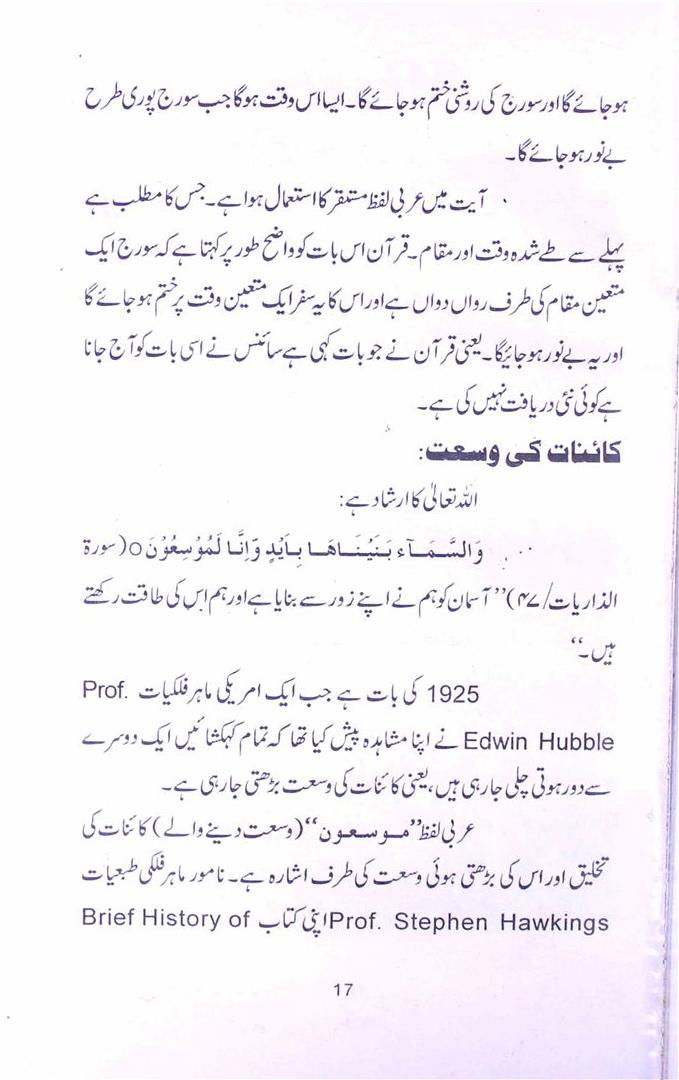 ہو جائے گا اور سورج کی روشنی ختم ہو جائے گا۔ ایسا اس وقت ہوگا جب سورج پوری طرح
بے نور ہو جائے گا۔
آیت میں عربی لفظ مستقر کا استعمال ہوا ہے۔ جس کا مطلب ہے
پہلے سے طے شدہ وقت اور مقام۔ قرآن اس بات کو واضح طور پر کہتا ہے کہ سورج ایک
متعین مقام کی طرف رواں دواں ہے اور اس کا یہ سفر ایک متعین وقت پر ختم ہو جائے گا
اور یہ بے نور ہو جائیگا۔ یعنی قرآن نے جو بات کہی ہے سائنس نے اسی بات کو آج جانا
ہے کوئی نئی دریافت نہیں کی ہے۔
کائنات کی وسعت:
اللہ تعالیٰ کا ارشاد ہے:
وَالسَّمَآءَ بَنَيْنَاهَا بِاَيْدٍ وَّاِنَّا لَمُوْسِعُوْنَ o (سورۃ
الذاریات/۴۷) ’’آسمان کو ہم نے اپنے زور سے بنایا ہے اور ہم اس کی طاقت رکھتے
ہیں۔‘‘
1925 کی بات ہے جب ایک امریکی ماہر فلکیات Prof.
Edwin Hubble نے اپنا مشاہدہ پیش کیا تھا کہ تمام کہکشائیں ایک دوسرے
سے دور ہوتی چلی جارہی ہیں، یعنی کائنات کی وسعت بڑھتی جارہی ہے۔
عربی لفظ ’’موسعون‘‘ (وسعت دینے والے) کائنات کی
تخلیق اور اس کی بڑھتی ہوئی وسعت کی طرف اشارہ ہے۔ نامور ماہر فلکی طبعیات
Prof. Stephen Hawkings اپنی کتاب Brief History of
17